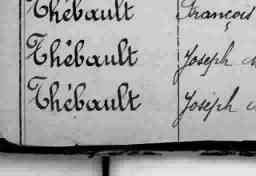 Thébault François
Thébault Joseph
Thébault Joseph